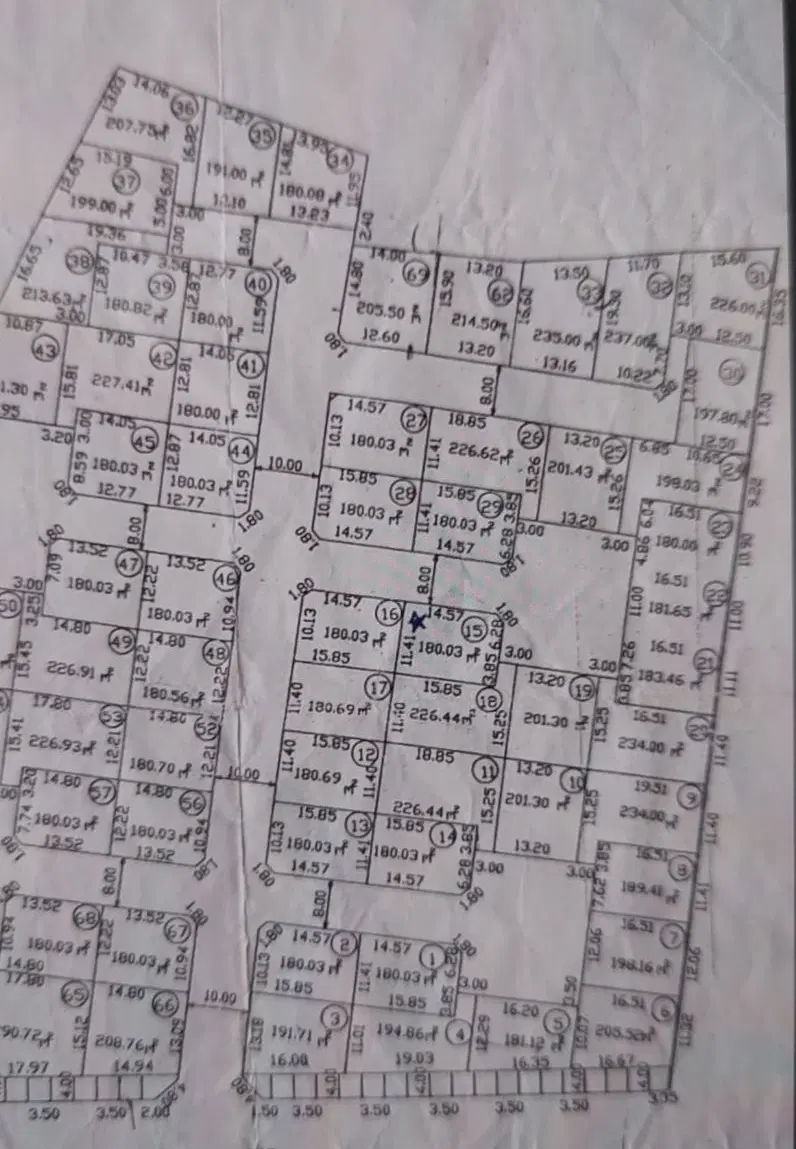 14.06
36
13.83
207.75 m²
16.82
35
191.00 m²
34
14.88
180.00 m²
13.23
2.40
15.19
37
12.65
199.00 m²
3.00
6.00
3.00
3.00
8.00
19.36
16.65
38
213.63 m²
3.00
10.47
3.58
12.87
39
180.82 m²
12.77
40
1.80
12.87
180.00 m²
11.59
14.00
69
14.80
205.50 m²
12.60
1.80
13.20
68
15.90
214.50 m²
13.20
13.50
33
16.60
235.00 m²
13.16
11.70
32
19.30
237.00 m²
10.22
15.60
31
13.10
226.00 m²
16.35
3.00
12.50
30
17.00
197.80 m²
17.00
12.50
10.87
43
1.30 m²
.95
15.81
17.05
42
227.41 m²
14.05
41
12.81
180.00 m²
12.81
3.20
3.00
14.05
45
8.59
180.03 m²
12.77
1.80
14.05
44
12.87
180.03 m²
11.59
12.77
1.80
10.00
8.00
8.00
14.57
27
10.13
180.03 m²
18.85
26
11.41
226.62 m²
13.20
25
15.26
201.43 m²
15.26
13.20
6.85
10.65
24
198.03 m²
9.22
15.85
28
10.13
180.03 m²
14.57
1.80
15.85
29
11.41
180.03 m²
3.85
6.28
14.57
1.80
3.00
3.00
6.04
4.86
16.51
23
180.00 m²
10.90
16.51
22
11.00
181.65 m²
11.00
16.51
21
7.26
183.46 m²
11.11
1.80
13.52
47
7.09
180.03 m²
13.52
46
1.80
12.22
180.03 m²
10.94
3.00
50
3.25
14.80
49
15.45
226.91 m²
14.80
48
12.22
180.56 m²
12.22
8.00
1.80
14.57
16
10.13
180.03 m²
15.85
14.57
15
1.80
11.41
180.03 m²
6.28
3.85
3.00
3.00
3.85
17
11.40
180.69 m²
15.85
18
11.40
226.44 m²
15.25
13.20
19
201.30 m²
15.25
16.51
20
234.00 m²
11.40
17.80
53
15.41
226.93 m²
14.80
52
12.21
180.70 m²
12.21
10.00
15.85
12
11.40
180.69 m²
11.40
18.85
11
226.44 m²
15.25
13.20
10
201.30 m²
15.25
13.20
19.51
9
234.00 m²
11.40
3.20
14.80
57
7.74
180.03 m²
13.52
1.80
14.80
56
12.22
180.03 m²
10.94
13.52
1.80
15.85
13
10.13
180.03 m²
14.57
1.80
15.85
14
11.41
180.03 m²
3.85
6.28
14.57
1.80
3.00
3.00
3.85
7.62
16.51
8
189.41 m²
11.41
8.00
8.00
13.52
68
10.94
180.03 m²
14.80
13.52
67
1.80
12.22
180.03 m²
10.94
1.80
14.57
2
10.13
180.03 m²
15.85
14.57
1
1.80
11.41
180.03 m²
6.28
3.85
15.85
3.00
16.51
7
12.06
198.16 m²
12.06
17.80
65
90.72 m²
17.97
14.80
66
15.12
208.76 m²
13.09
14.94
10.00
3
13.18
191.71 m²
16.00
194.86 m²
4
11.01
19.03
16.20
5
12.29
181.12 m²
16.35
3.50
10.07
16.51
6
205.52 m²
16.67
11.32
4.00
4.00
4.00
4.00
4.00
3.50
3.50
2.00
1.50
3.50
3.50
3.50
3.50